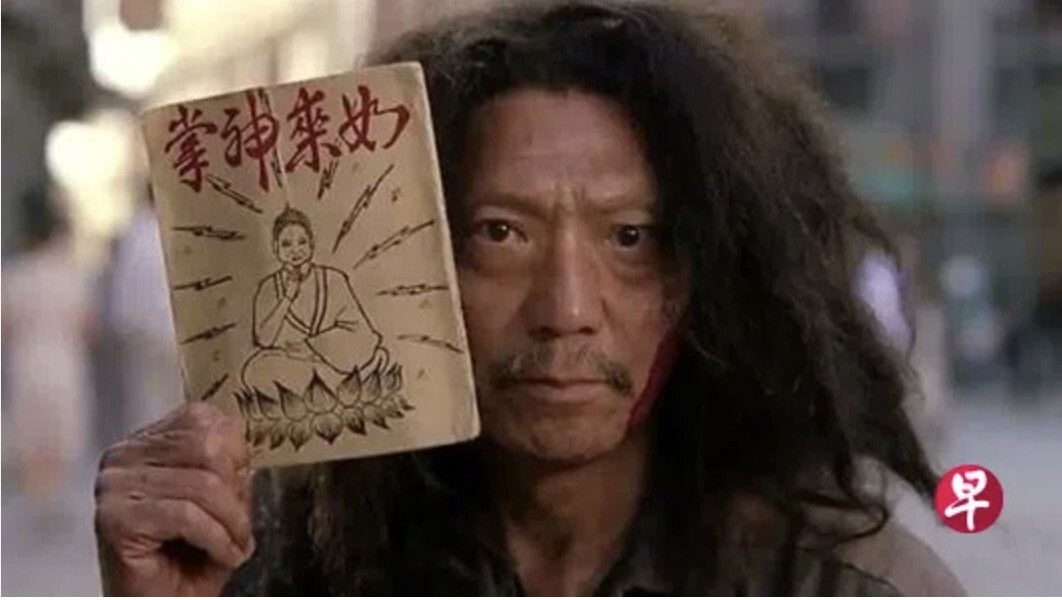 如來神掌
早